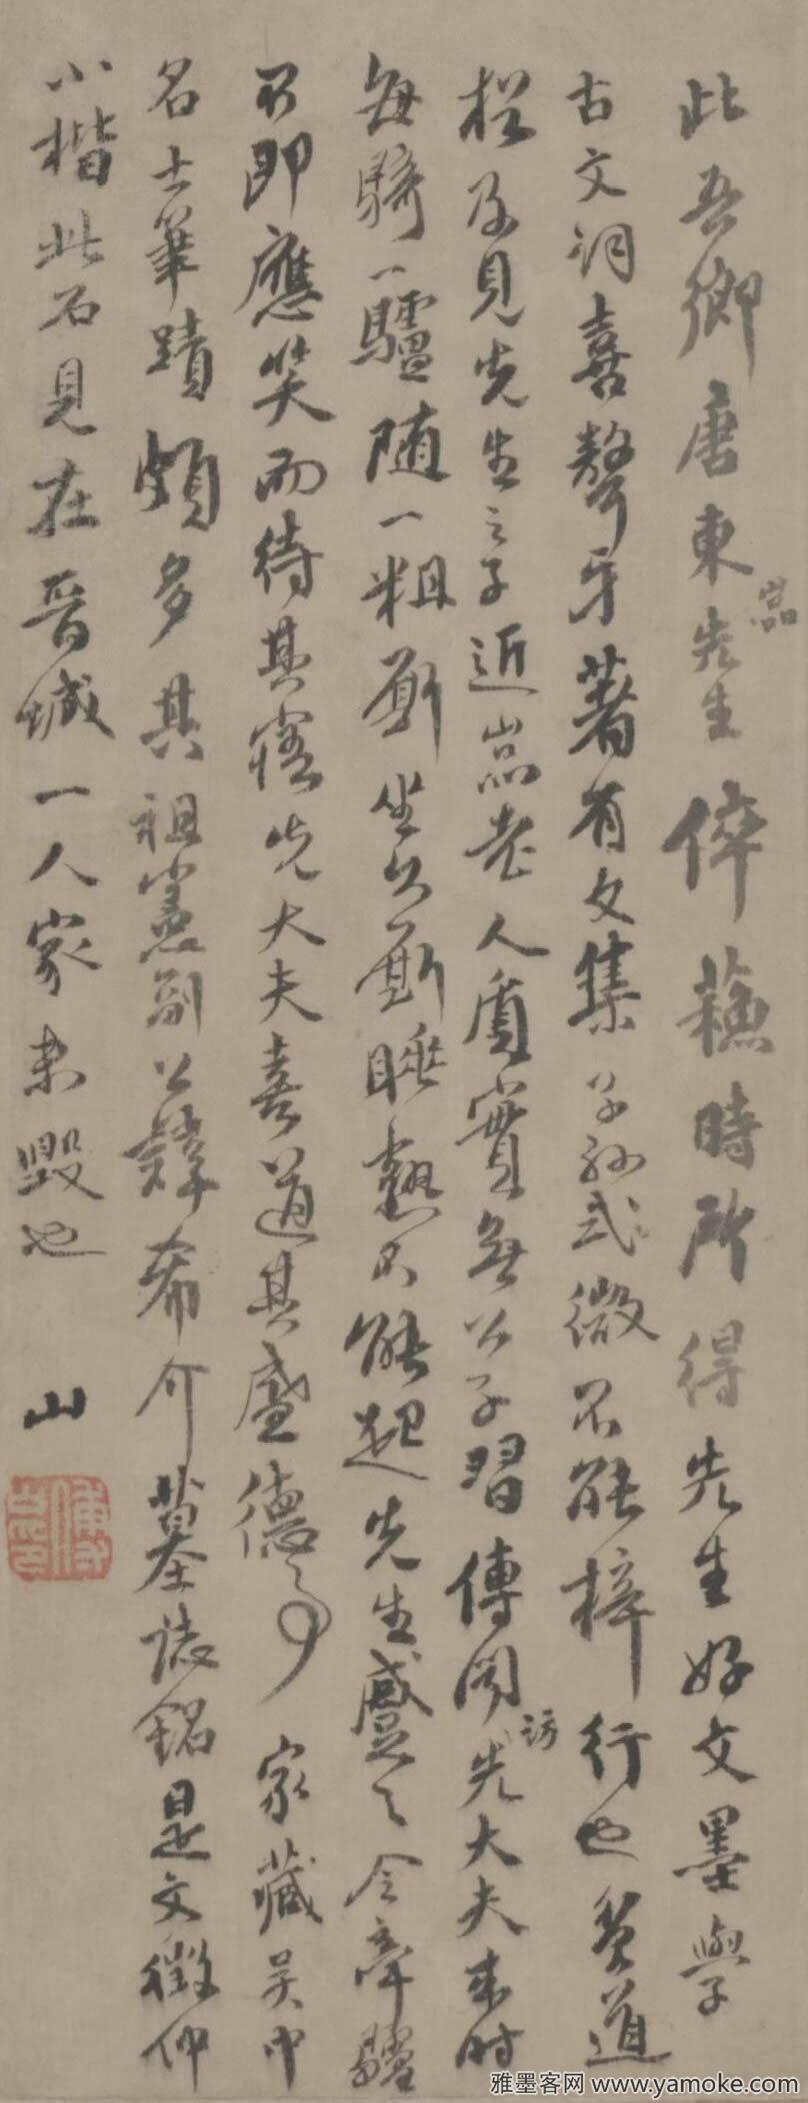 此吾鄉唐東嵓先生倅蘇時所得先生好文墨學
古文詞喜聱牙著有文集子孫式微不能梓行也貧道
猶及見先生之子近嵓老人質實無公子習傳聞訪先大夫來時
每騎一驢隨一粗厮坐久厮睡熟不能起先生蹙之令牽驢
不即應笑而待其寤先大夫喜道其盛德事家藏吴中
名士筆蹟頗多其祖憲副公諱希介墓誌銘是文徵仲
小楷此石見在晋城一人家未毀也
山
雅墨客网 www.yamoke.com